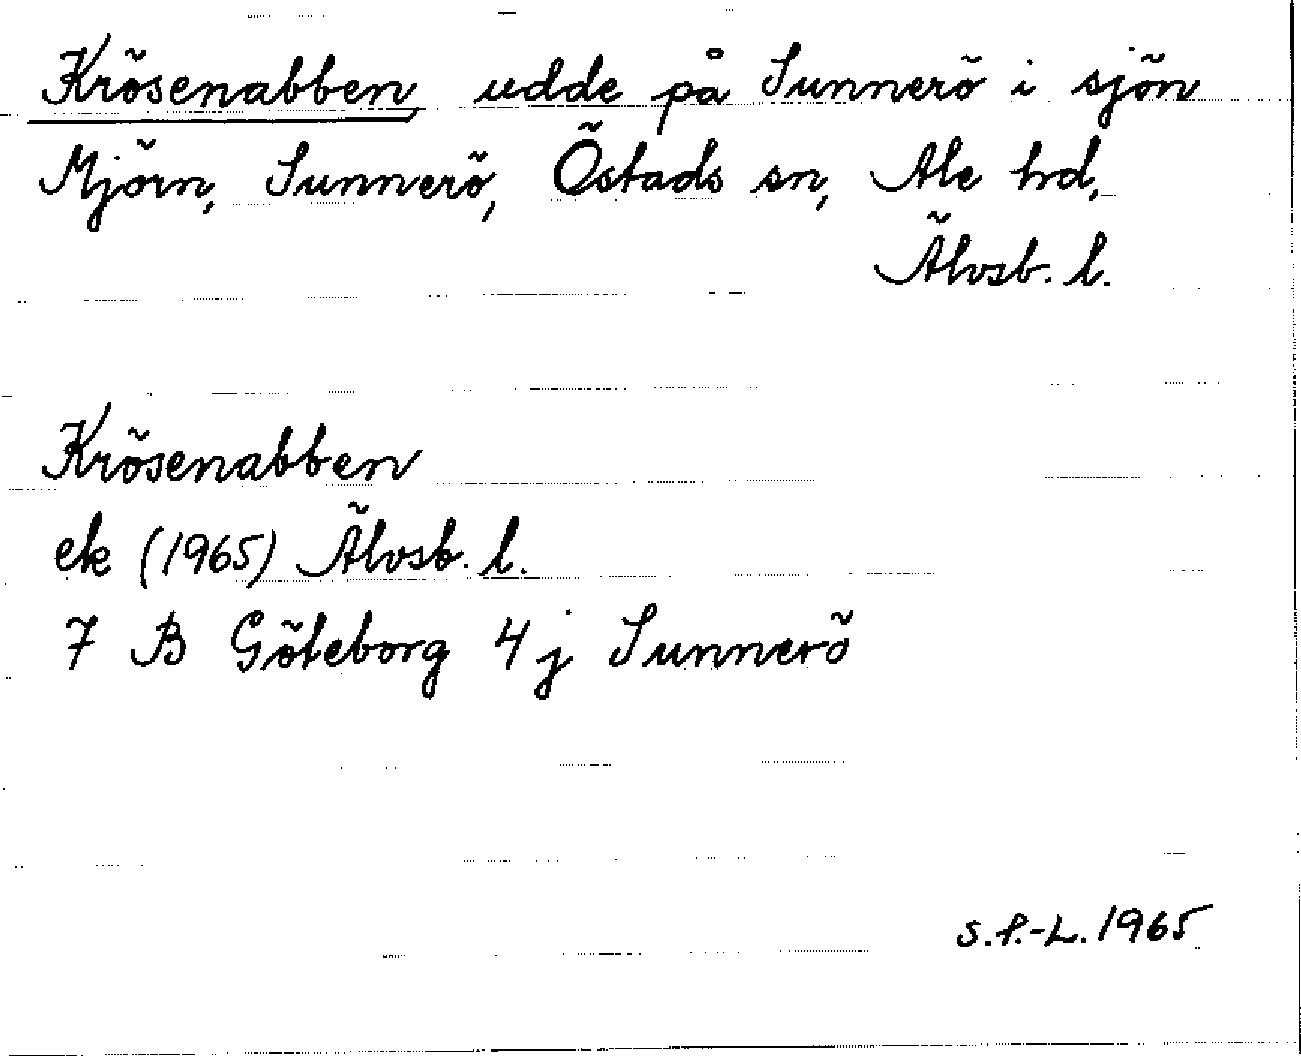 Krösenabben, udde på Sunnerö i sjön
Mjörn, Sunnerö, Östads sn, Ale hd,
Älvsb. l.
Krösenabben
ek (1965) Älvsb. l.
7 B Göteborg 4 j Sunnerö
S.P.-L. 1965